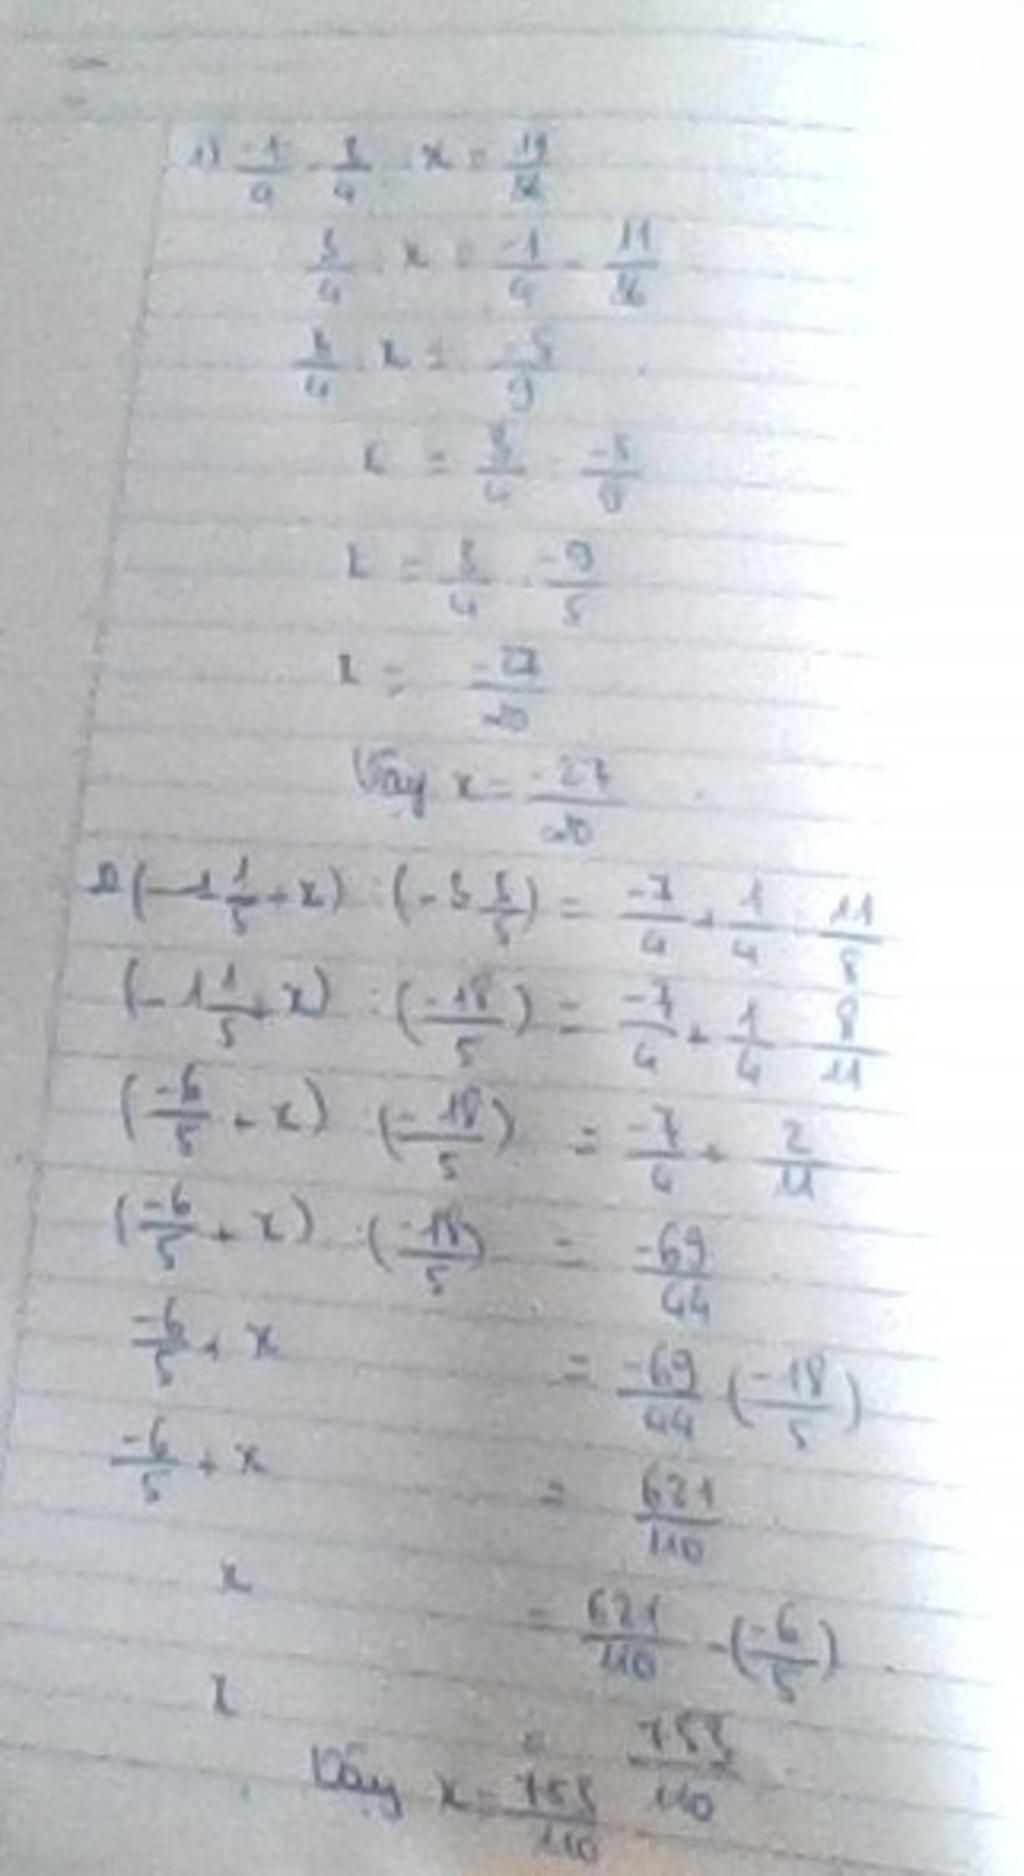 1) -1/4 - 3/4 : x = 11/36
3/4 : x = -1/4 - 11/36
3/4 : x = -5/9
x = 3/4 : -5/9
x = 3/4 . -9/5
x = -27/20
Vậy x = -27/20
2) (-1 1/5 + x) : (-3 3/5) = -7/4 + 1/4 : 11/8
(-1 1/5 + x) : (-18/5) = -7/4 + 1/4 . 8/11
(-6/5 + x) : (-18/5) = -7/4 + 2/11
(-6/5 + x) : (-18/5) = -69/44
-6/5 + x = -69/44 . (-18/5)
-6/5 + x = 621/110
x = 621/110 - (-6/5)
x = 753/110
Vậy x = 753/110